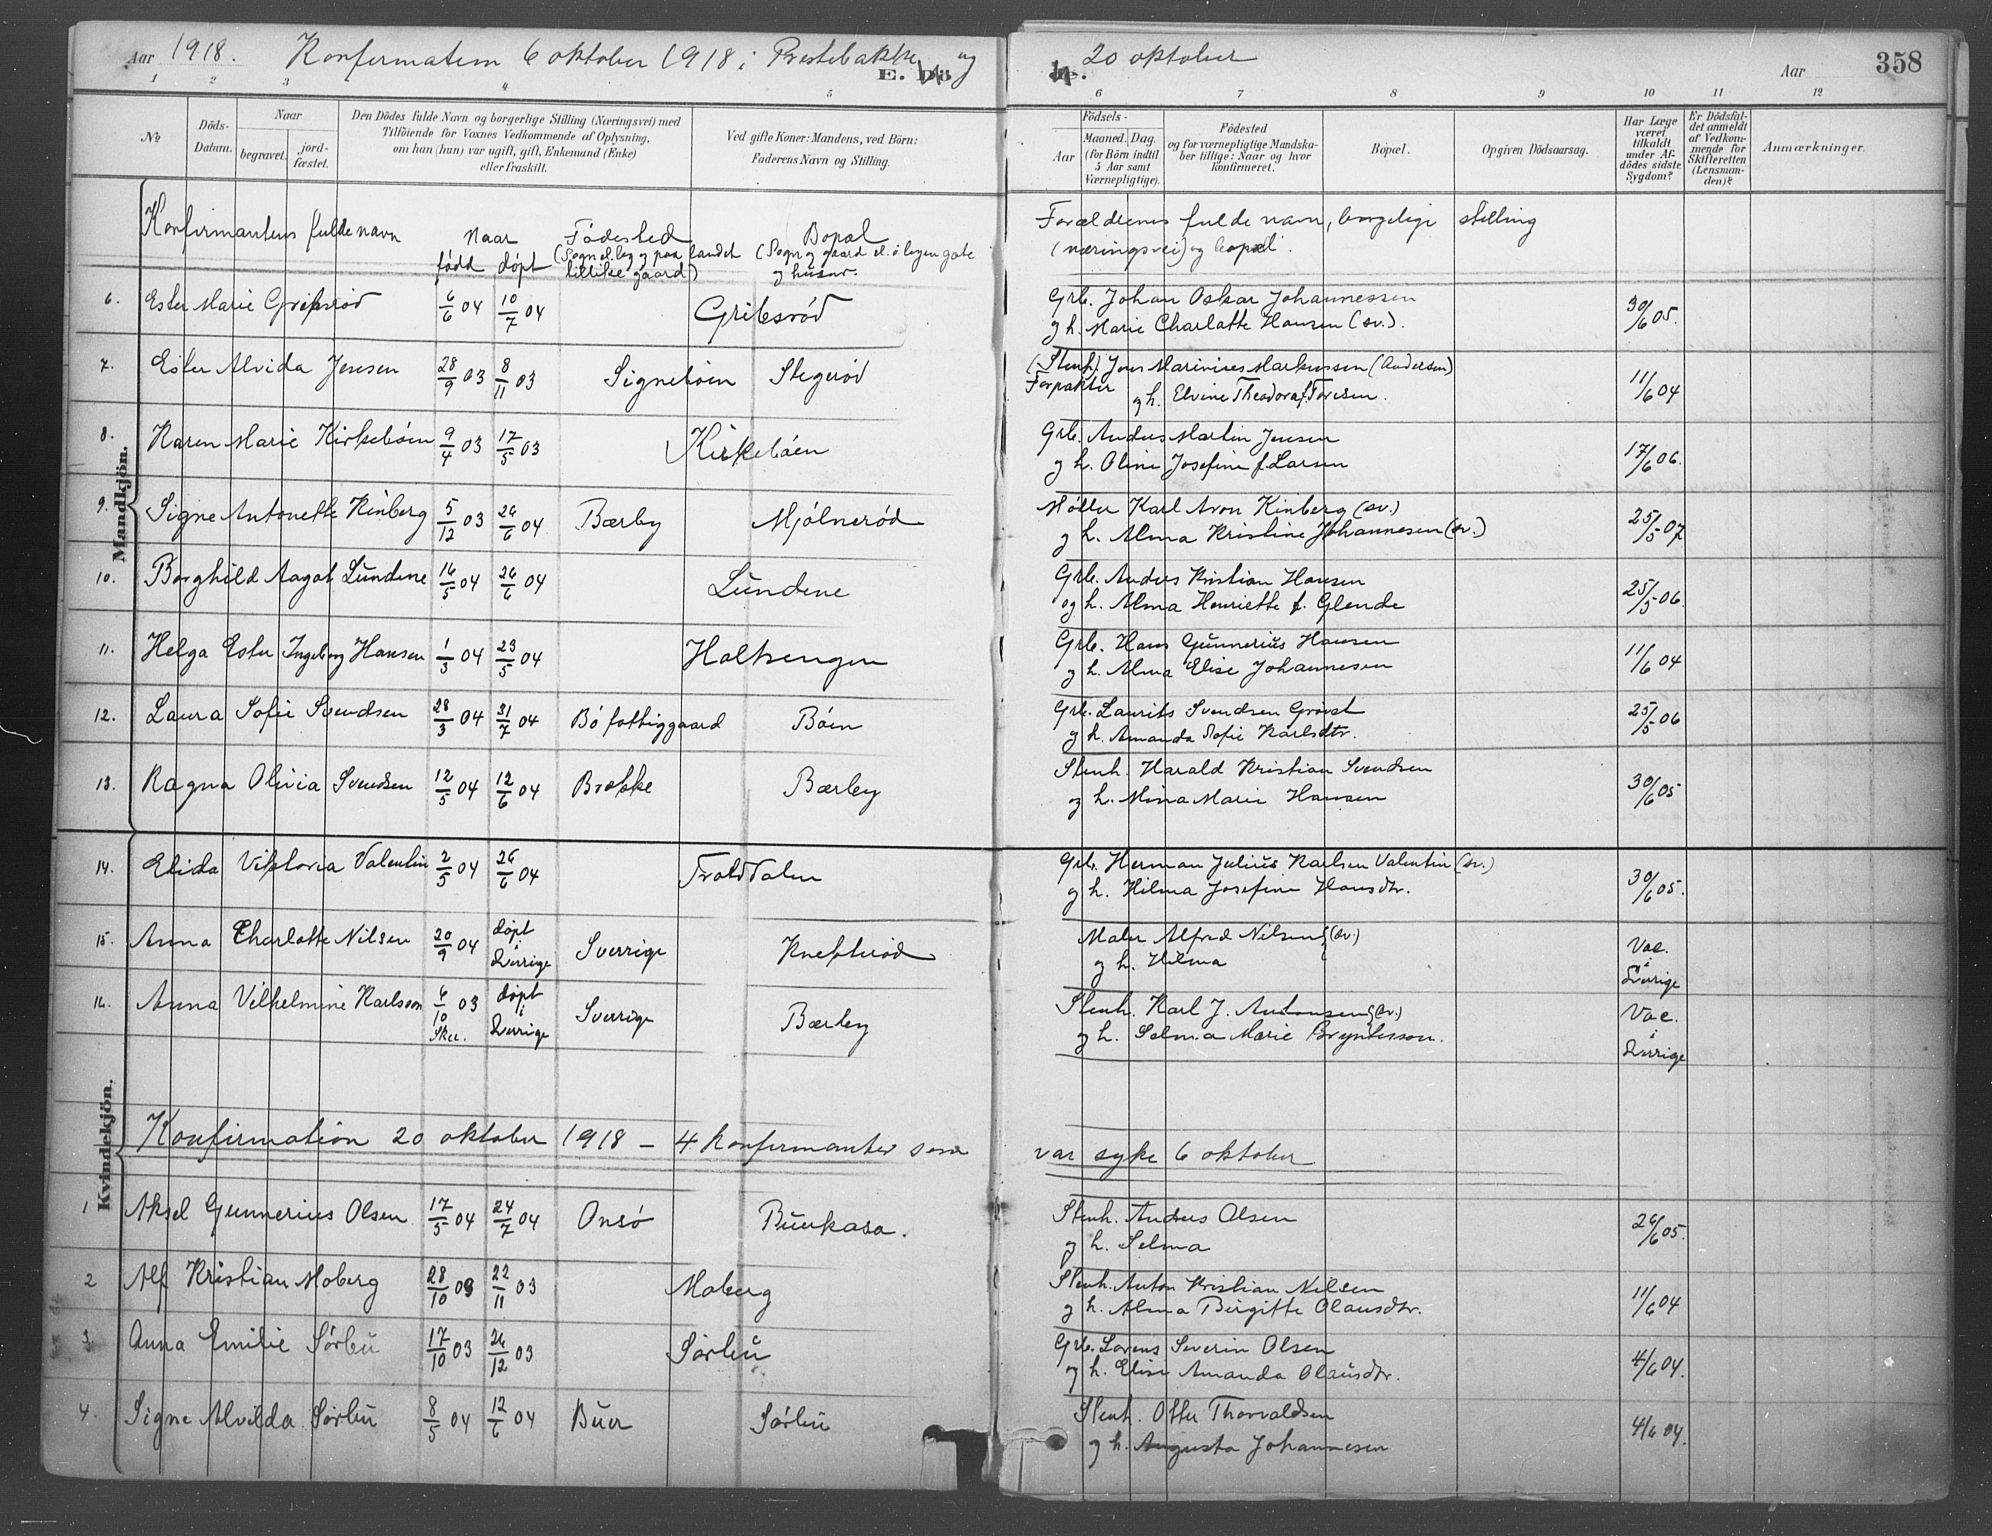 Aar 1918. Konfirmation 6 oktober 1918 i Prestebakke og 20 oktober Aar 358
E. Dö
1 2 3 4 5 6 7 8 9 10 11 12
№
Döds-Datum.
Naar
begravet.
jord-fæstet.
Den Dödes fulde Navn og borgerlige Stilling (Næringsvei) med
Tilföiende for Voxnes Vedkommende af Oplysning,
om han (hun) var ugift, gift, Enkemand (Enke)
eller fraskilt.
Ved gifte Koner: Mandens, ved Börn:
Faderens Navn og Stilling.
Födsels-
Aar
Maaned. Dag.
(for Börn indtil
5 Aar samt
Værnepligtige).
Födested
og for værnepligtige Mandska-
ber tillige: Naar og hvor
konfirmeret.
Bopæl.
Opgiven Dödsaarsag.
Har Læge
været
tilkaldt
under Af-
dödes sidste
Sygdom?
Er Dödsfal-
det anmeldt
af Vedkom-
mende for
Skifteretten
(Lensman-
den)?
Anmærkninger.
Mandkjön.
Kvindekjön.
Konfirmantens fulde navn
Naar
född döpt
Födested
(Sogn el. by og paa landet
tillike gaard)
Bopæl
(Sogn og gaard el. i byen gate
og husnr.
Forældrenes fulde navn, borgelige stilling
(næringsvei) og bopæl.
6. Ester Marie Gribsröd 6/6 04 10/7 04 Gribsröd Grb. Johan Oskar Johannessen 30/6 05.
og h. Marie Charlotte Hansen (sv.).
7. Ester Alvida Jensen 28/9 03 8/11 03 Signeböen Stegeröd (Stenh.) Jens Marinius Markussen (Andersen) 11/6 04
Forpakter og h. Elvine Theodora f. Toresen.
8. Karen Marie Kirkeböen 9/4 03 17/5 03 Kirkeböen Grb. Anders Martin Jensen 17/6 06.
og h. Oline Josefine f. Larsen
9. Signe Antonette Kinberg 5/12 03 26/6 04 Bærby Mjölneröd Möller Karl Aron Kinberg (sv.) 25/5 07
og h. Alma Kristine Johannesen (sv.)
10. Borghild Aagot Lundene 16/5 04 26/6 04 Lundene Grb. Anders Kristian Hansen 25/5 06.
og h. Alma Henriette f. Glende
11. Helga Ester Ingeborg Hansen 1/3 04 23/5 04 Holtsengen Grb. Hans Gunnerius Hansen 11/6 04
og h. Alma Elise Johannesen
12. Laura Sofie Svendsen 28/3 04 31/7 04 Bö fattiggaard Böen Grb. Laurits Svendsen 25/5 06
og h. Amanda Sofie Karlsdtr.
13. Ragna Olivia Svendsen 12/5 04 12/6 04 Brekke Bærby Stenh. Harald Kristian Svendsen 30/6 05
og h. Mina Marie Hansen
14. Elida Viktoria Valentin 2/5 04 26/6 04 Trolddalen Grb. Herman Julius Karlsen Valentin (sv.) 30/6 05.
og h. Hilma Josefine Hansdtr.
15. Anna Charlotte Nilsen 20/9 04 döpt i Sverrige Sverrige Knefteröd Maler Alfred Nilsen (sv.) Vac. i Sverige
og h. Hilma
16. Anna Vilhelmine Karlsson 6/10 03 döpt i Sverrige Sverrige Bærby Stenh. Karl J. Antonsen (sv.) Vac. i Sverrige
Skee. og h. Selma Marie Bryntesson.
Konfirmation 20 oktober 1918 – 4 konfirmanter som var syke 6 oktober
1 Aksel Gunnerius Olsen 17/5 04 24/7 04 Onsö Buukasa. Stenh. Anders Olsen 26/6 05.
og h. Selma
2 Alf Kristian Moberg 28/10 03 22/11 03 Moberg Stenh. Anton Kristian Nilsen 11/6 04
og h. Alma Birgitte Olausdtr.
3 Anna Emilie Sörbu 17/10 03 26/12 03 Sörbu Grb. Lorens Severin Olsen 4/6 04.
og h. Elise Amanda Olausdtr.
4. Signe Alvilda Sörbu 8/5 04 12/6 04 Buer Sörbu Stenh. Otter Thorvaldsen 4/6 04.
og h. Augusta Johannesen